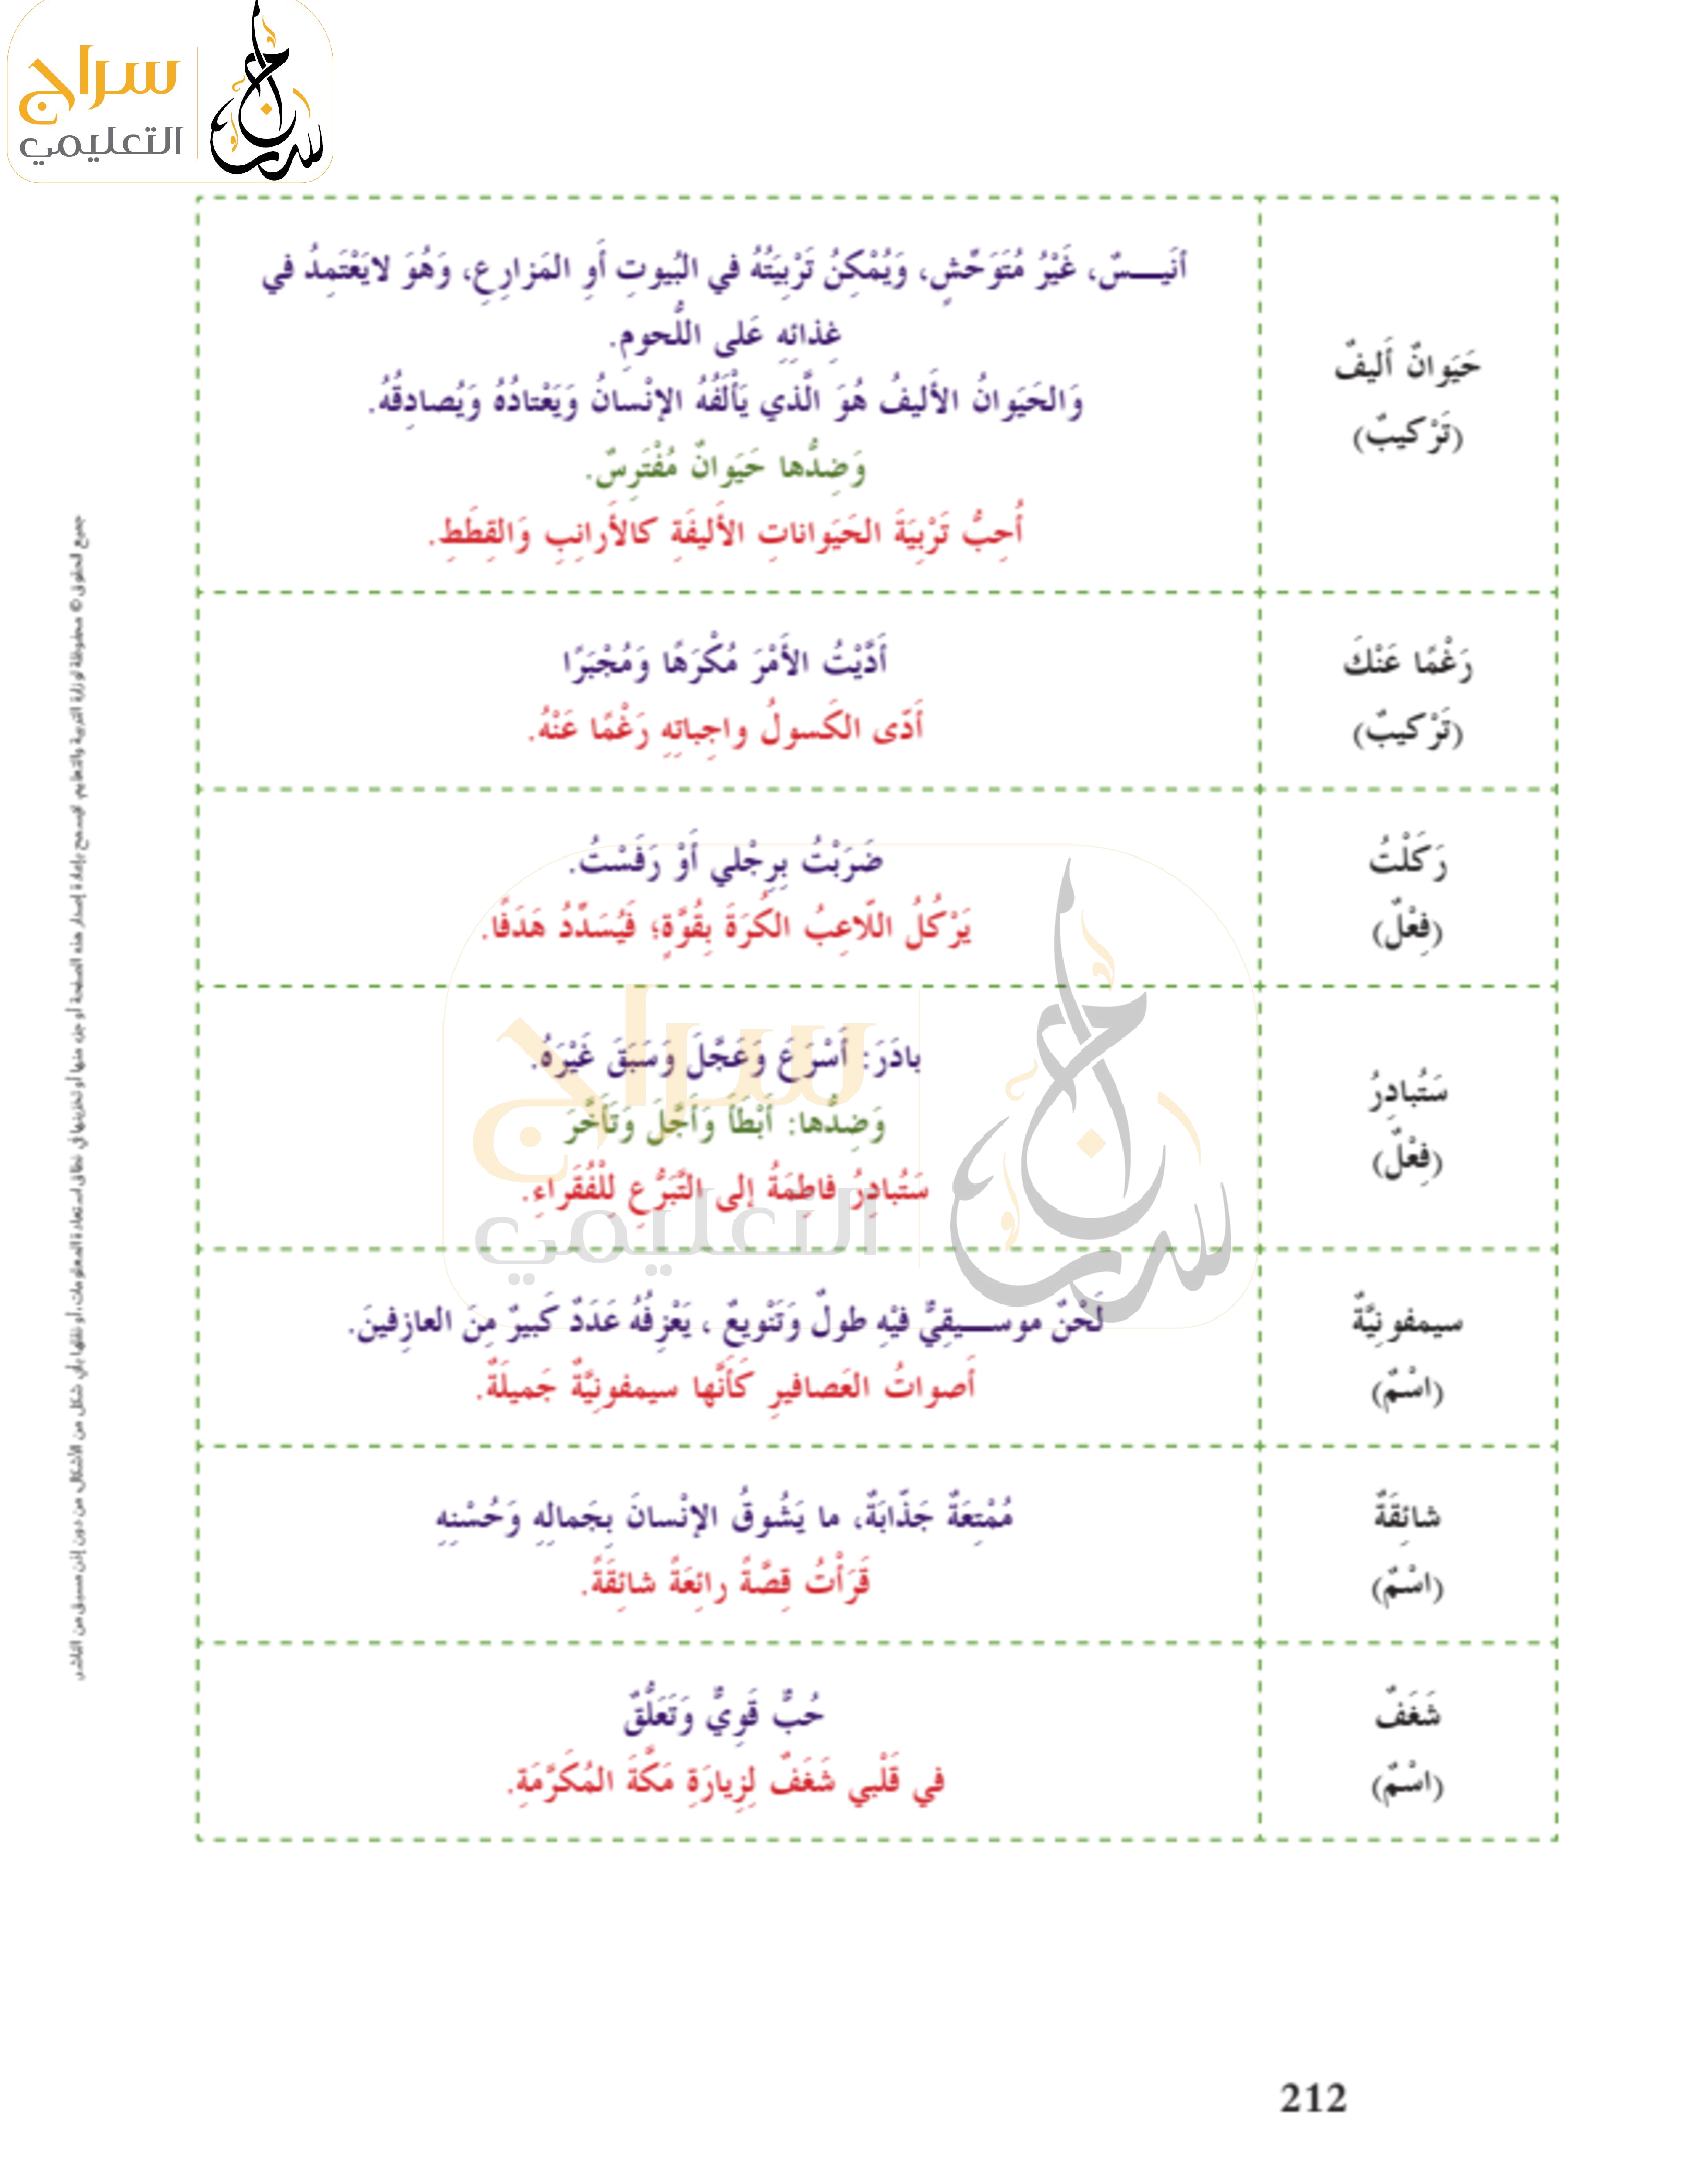 سراج
التعليمي
حَيَوانٌ أَليفٌ
(تَرْكيبٌ)
أنَيسٌ، غَيْرُ مُتَوَحِّشٍ، وَيُمْكِنُ تَرْبِيَتُهُ في البُيوتِ أَوِ المَزارِعِ، وَهُوَ لايَعْتَمِدُ في
غِذائِهِ عَلى اللُّحومِ.
وَالحَيَوانُ الأَليفُ هُوَ الَّذي يَأْلَفُهُ الإنْسانُ وَيَعْتادُهُ وَيُصادِقُهُ.
وَضِدُّها حَيَوانٌ مُفْتَرِسٌ.
أُحِبُّ تَرْبِيَةَ الحَيَواناتِ الأَليفَةِ كالأَرانِبِ وَالقِطَطِ.
رَغْمًا عَنْكَ
(تَرْكيبٌ)
أَدَّيْتُ الأَمْرَ مُكْرَهًا وَمُجْبَرًا
أَدّى الكَسولُ واجِباتِهِ رَغْمًا عَنْهُ.
رَكَلْتُ
(فِعْلٌ)
ضَرَبْتُ بِرِجْلي أَوْ رَفَسْتُ.
يَرْكُلُ اللّاعِبُ الكُرَةَ بِقُوَّةٍ؛ فَيُسَدِّدُ هَدَفًا.
سَتُبادِرُ
(فِعْلٌ)
بادَرَ: أَسْرَعَ وَعَجَّلَ وَسَبَقَ غَيْرَهُ.
وَضِدُّها: أَبْطَأَ وَأَجَّلَ وَتَأَخَّرَ
سَتُبادِرُ فاطِمَةُ إلى التَّبَرُّعِ لِلْفُقَراءِ.
سيمفونِيَّةٌ
(اسْمٌ)
لَحْنٌ موسيقِيٌّ فيْهِ طولٌ وَتَنْويعٌ ، يَعْزِفُهُ عَدَدٌ كَبيرٌ مِنَ العازِفينَ.
أَصواتُ العَصافيرِ كَأَنَّها سيمفونِيَّةٌ جَميلَةٌ.
شائِقَةٌ
(اسْمٌ)
مُمْتِعَةٌ جَذّابَةٌ، ما يَشُوقُ الإنْسانَ بِجَمالِهِ وَحُسْنِهِ
قَرَأْتُ قِصَّةً رائِعَةً شائِقَةً.
شَغَفٌ
(اسْمٌ)
حُبٌّ قَوِيٌّ وَتَعَلُّقٌ
في قَلْبي شَغَفٌ لِزِيارَةِ مَكَّةَ المُكَرَّمَةِ.
جميع الحقوق © محفوظة لوزارة التربية والتعليم. لايسمح بإعادة إصدار هذه الصفحة أو جزء منها أو تخزينها في نطاق استعادة المعلومات، أو نقلها بأي شكل من الأشكال، من دون إذن مسبق من الناشر.
سراج
التعليمي
212